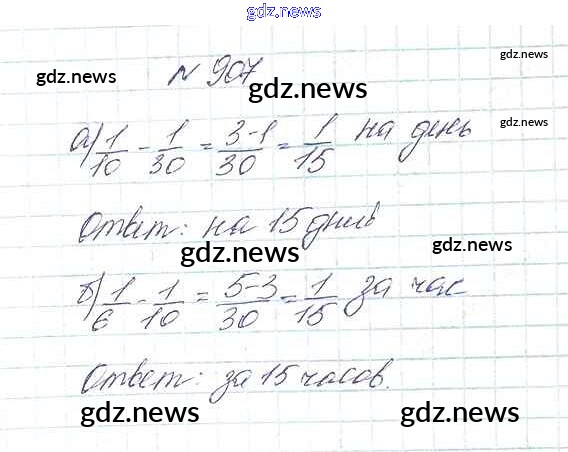 gdz.news
№ 907
gdz.news gdz.news gdz.news
а) 1/10 - 1/30 = 3-1/30 = 1/15 на день
gdz.news
Ответ: на 15 дней
gdz.news gdz.news
б) 1/6 - 1/10 = 5-3/30 = 1/15 за час
gdz.news
Ответ: за 15 часов.
gdz.news gdz.news